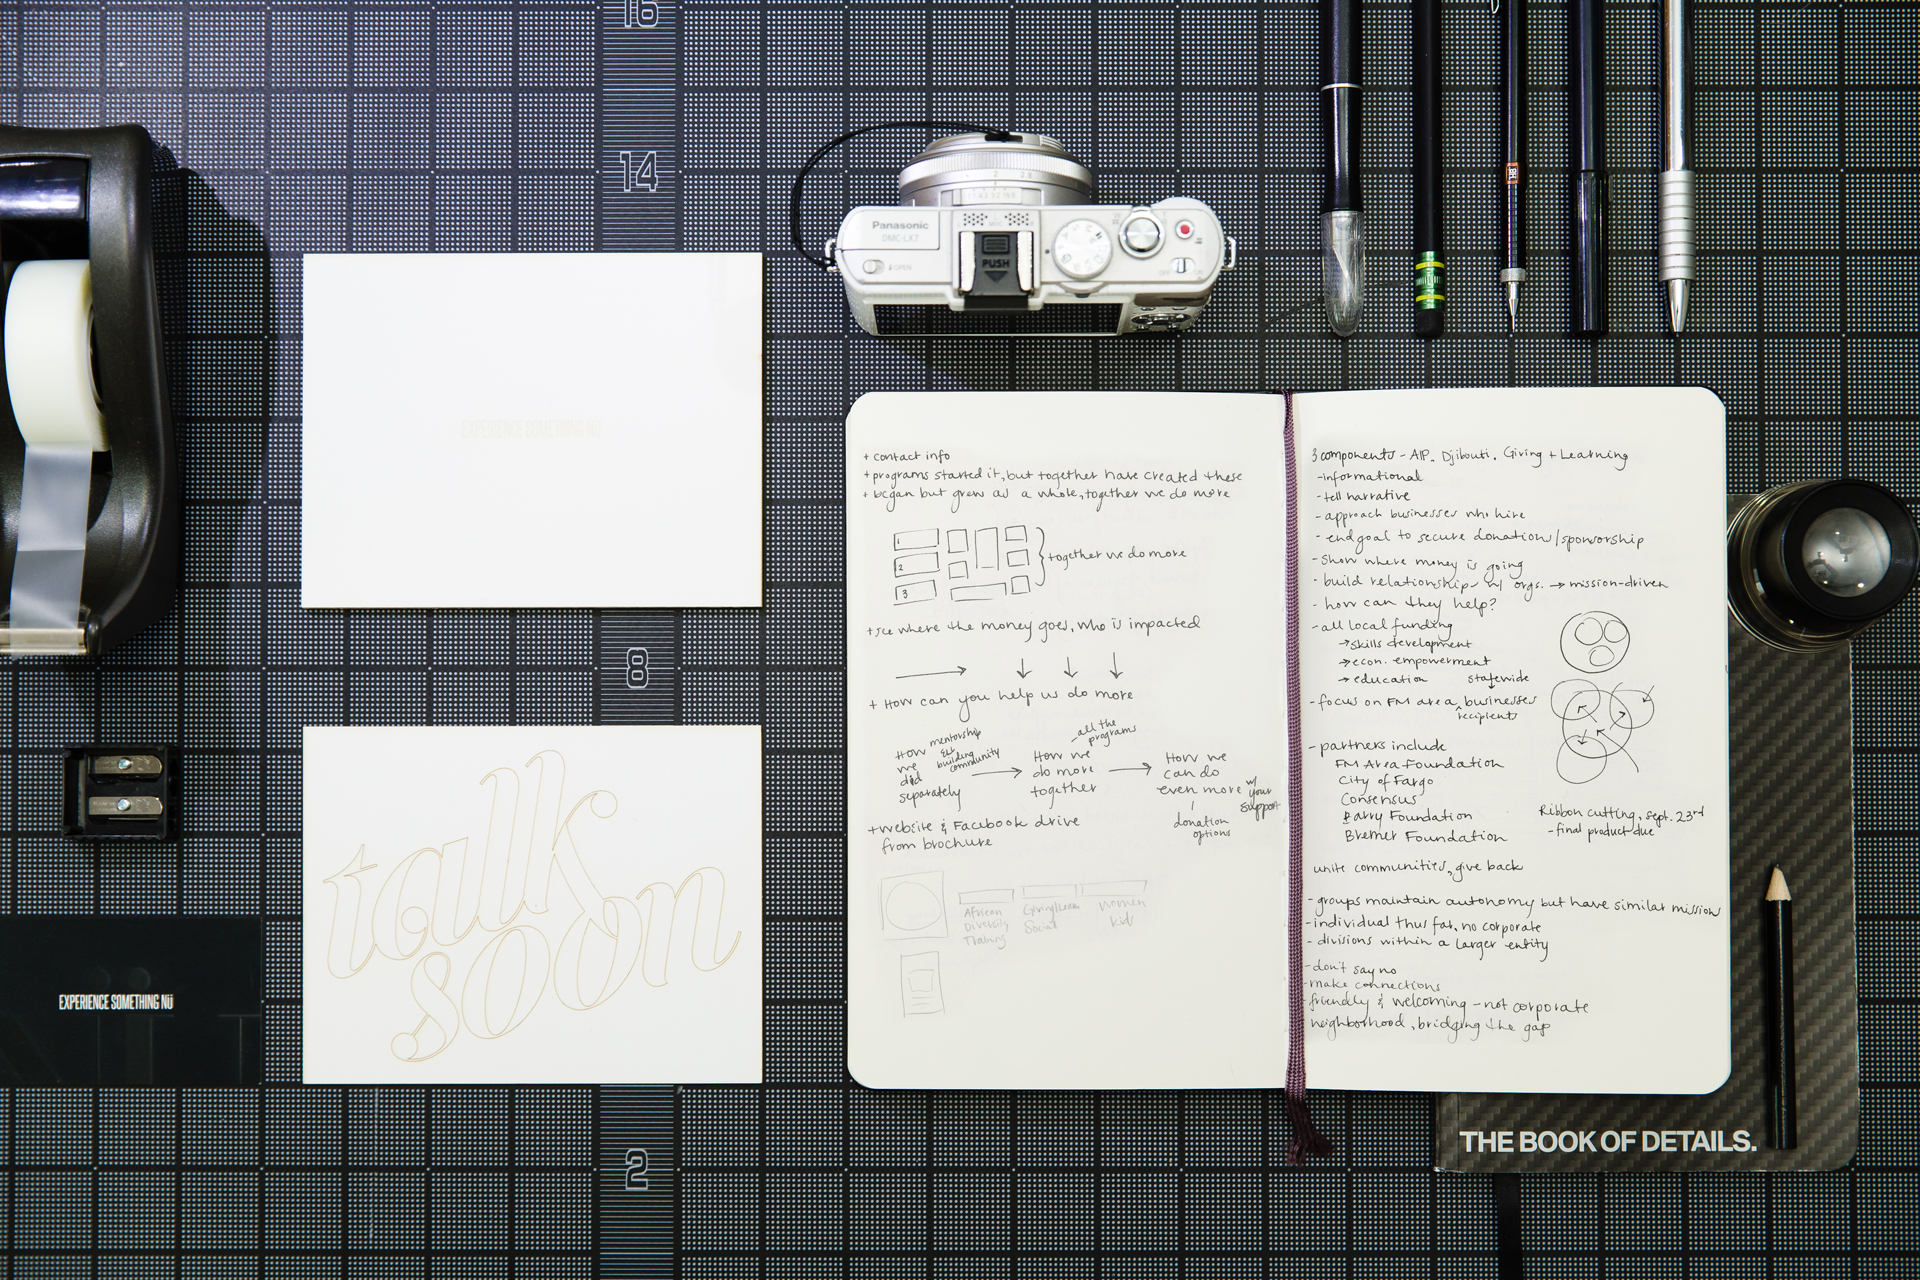 16
14
8
2
Panasonic
DMC-LX7
OPEN
PUSH
OFF ON
EXPERIENCE SOMETHING NÜ
talk
soon
EXPERIENCE SOMETHING NÜ
+ contact info
+ programs started it, but together have created these
+ began but grew as a whole, together we do more
1
2
3
together we do more
+ see where the money goes, who is impacted
+ How can you help us do more
How
we
did
separately
mentorship
building
community
How we
do more
together
all the
programs
How we
can do
even more
w/
your
support
donation
options
+ website & Facebook drive
from brochure
African
Diversity
Training
Social
women
kid
3 components - AIP. Djibouti. Giving + Learning
- informational
- tell narrative
- approach businesses who hire
- end goal to secure donation/sponsorship
- show where money is going
- build relationship w/ orgs. → mission-driven
- how can they help?
- all local funding
→ skills development
→ econ. empowerment
→ education
statewide
- focus on FM area businesses
recipients
- partners include
FM Area Foundation
City of Fargo
Consensus
Barry Foundation
Bremer Foundation
Ribbon cutting, Sept. 23rd
- final product due
unite communities, give back
- groups maintain autonomy but have similar mission
- individual thus far, no corporate
- divisions within a larger entity
- don't say no
- make connections
- friendly & welcoming - not corporate
neighborhood, bridging the gap
THE BOOK OF DETAILS.